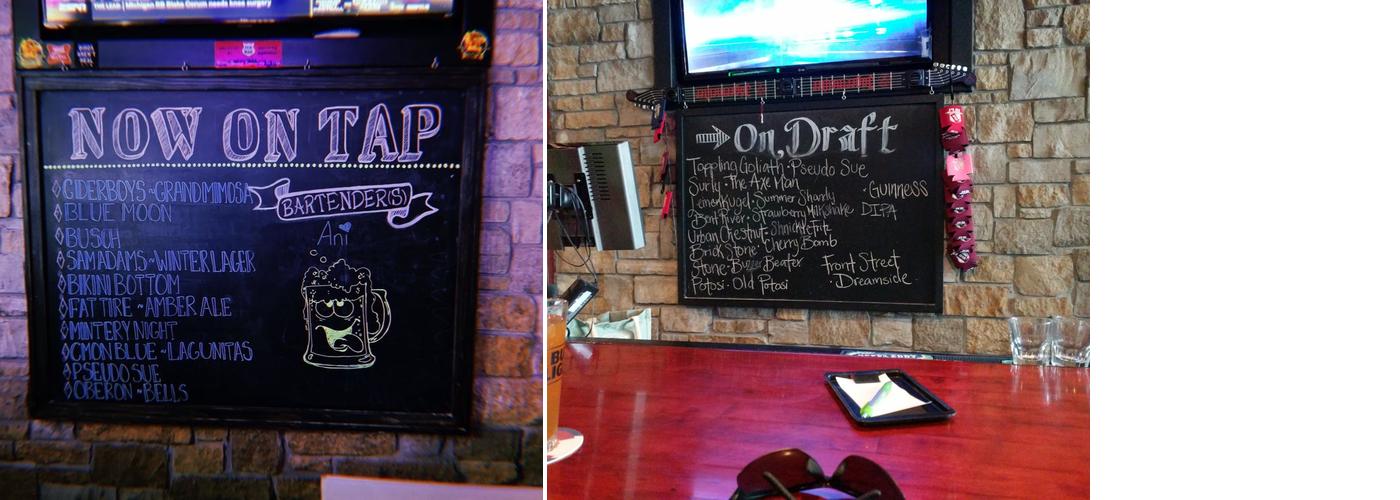 Michigan RB Blake Corum needs knee surgery
NOW ON TAP
CIDERBOYS ~ GRAND MIMOSA
BLUE MOON
BUSCH
SAM ADAMS ~ WINTER LAGER
BIKINI BOTTOM
FAT TIRE ~ AMBER ALE
MINTERY NIGHT
CMON BLUE ~ LAGUNITAS
PSEUDO SUE
OBERON ~ BELLS
BARTENDER(S)
Ani
On Draft
Toppling Goliath · Pseudo Sue
Surly · The Axe Man
Leinenkugel · Summer Shandy
· GUINNESS
Bent River · Strawberry Milkshake DIPA
Urban Chestnut · Shnickelfritz
Brick Stone · Cherry Bomb
Stone · Buenaveza Beater
Front Street
Potosi · Old Potosi
· Dreamside